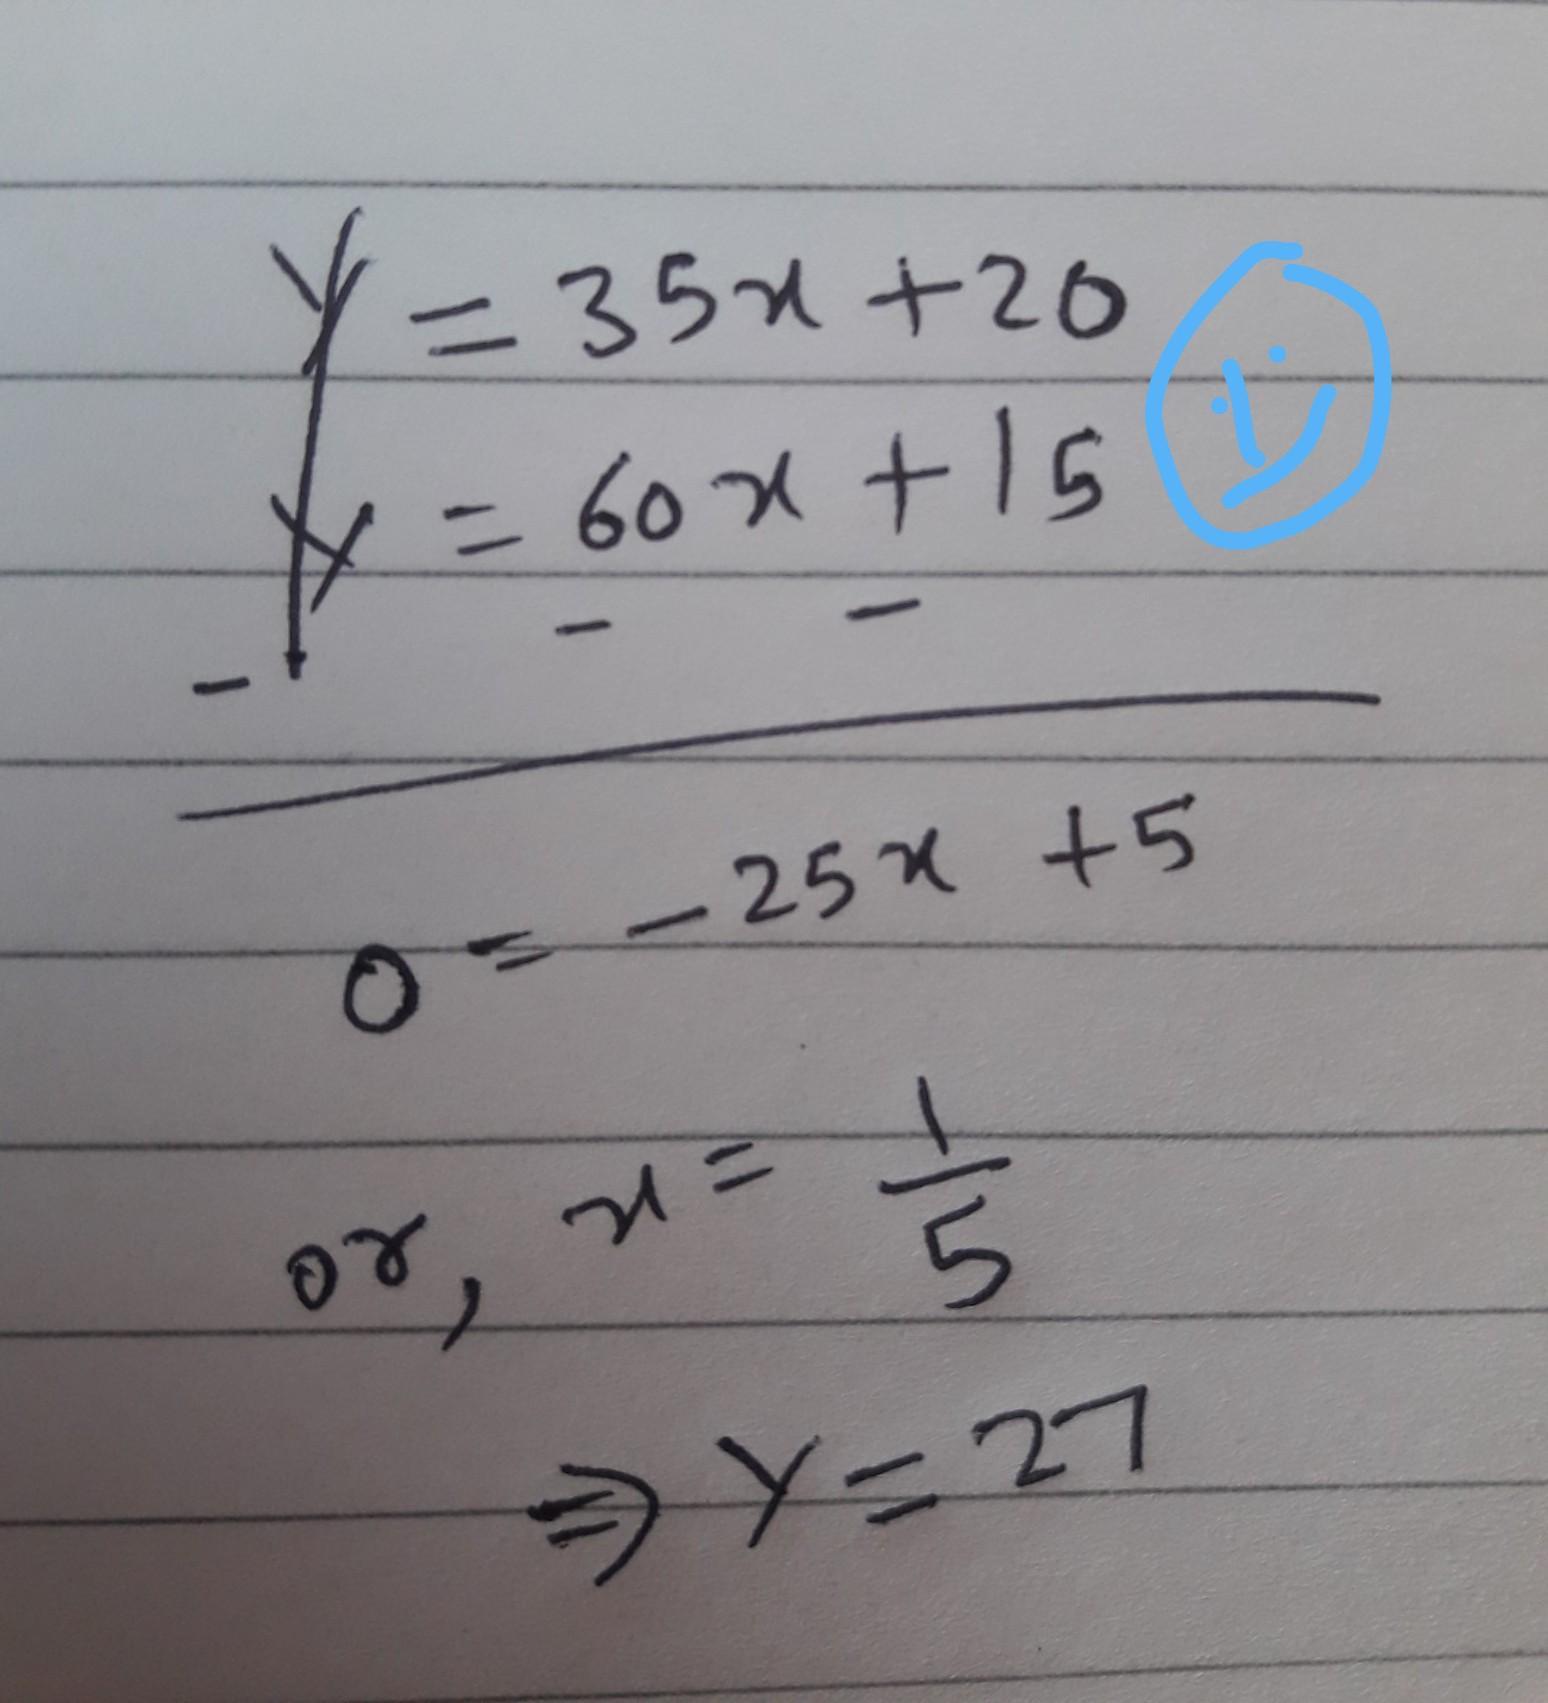 Y = 35x + 20
Y = 60x + 15
- - -
0 = - 25x + 5
or, x = 1/5
⇒ Y = 27